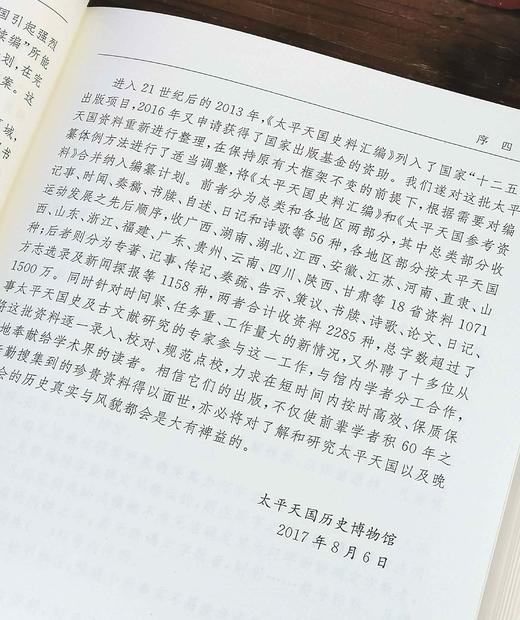 国引起强烈
编”所能
划,在完
案。这
域,
书
序 四
进入 21 世纪后的 2013 年,《太平天国史料汇编》列入了国家“十二五
出版项目,2016 年又申请获得了国家出版基金的资助。我们遂对这批太平
天国资料重新进行整理,在保持原有大框架不变的前提下,根据需要对编
纂体例方法进行了适当调整,将《太平天国史料汇编》和《太平天国参考资
料》合并纳入编纂计划。前者分为总类和各地区两部分,其中总类部分收
记事、时闻、奏稿、书牍、自述、日记和诗歌等 56 种,各地区部分按太平天国
运动发展之先后顺序,收广西、湖南、湖北、江西、安徽、江苏、河南、直隶、山
西、山东、浙江、福建、广东、贵州、云南、四川、陕西、甘肃等 18 省资料 1071
种;后者则分为专著、记事、传记、奏疏、告示、兼议、书牍、诗歌、论文、日记、
方志选录及新闻探报等 1158 种,两者合计收资料 2285 种,总字数超过了
1500 万。同时针对时间紧、任务重、工作量大的新情况,又外聘了十多位从
事太平天国史及古文献研究的专家参与这一工作,与馆内学者分工合作,
将这批资料逐一录入、校对、规范点校,力求在短时间内按时高效、保质保
地奉献给学术界的读者。相信它们的出版,不仅使前辈学者积 60 年之
勤搜集到的珍贵资料得以面世,亦必将对了解和研究太平天国以及晚
会的历史真实与风貌都会是大有裨益的。
太平天国历史博物馆
2017 年 8 月 6 日